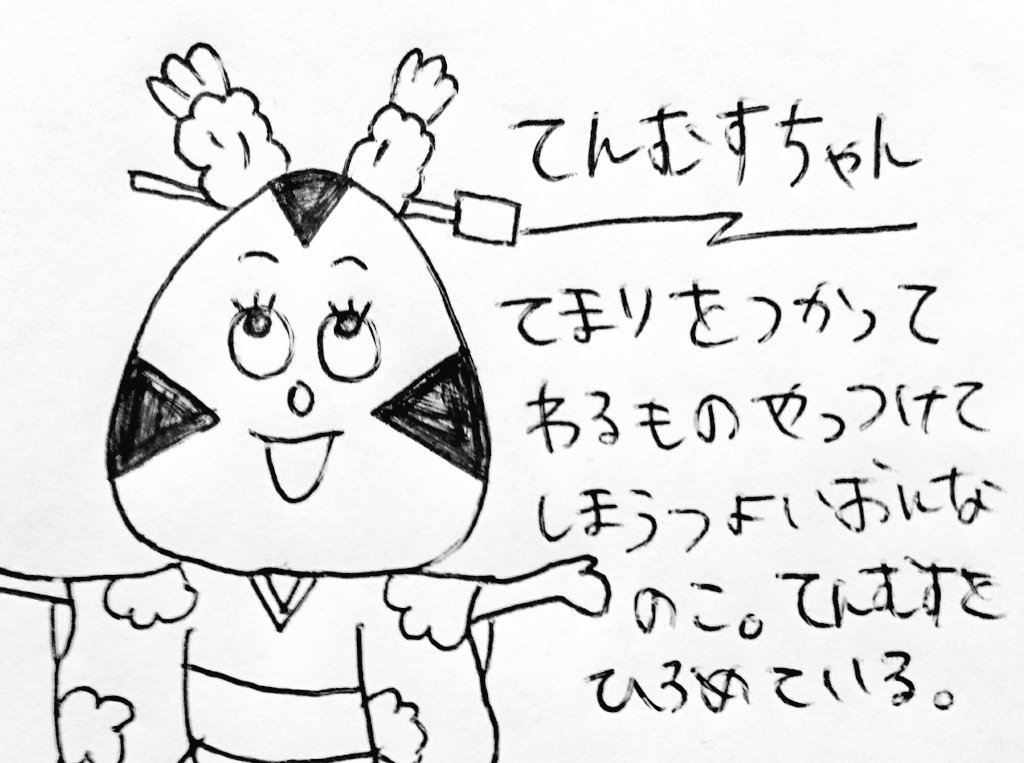 てんむすちゃん
てまりをつかって
わるものやっつけて
しまうつよいおんな
のこ。てんむすを
ひろめている。